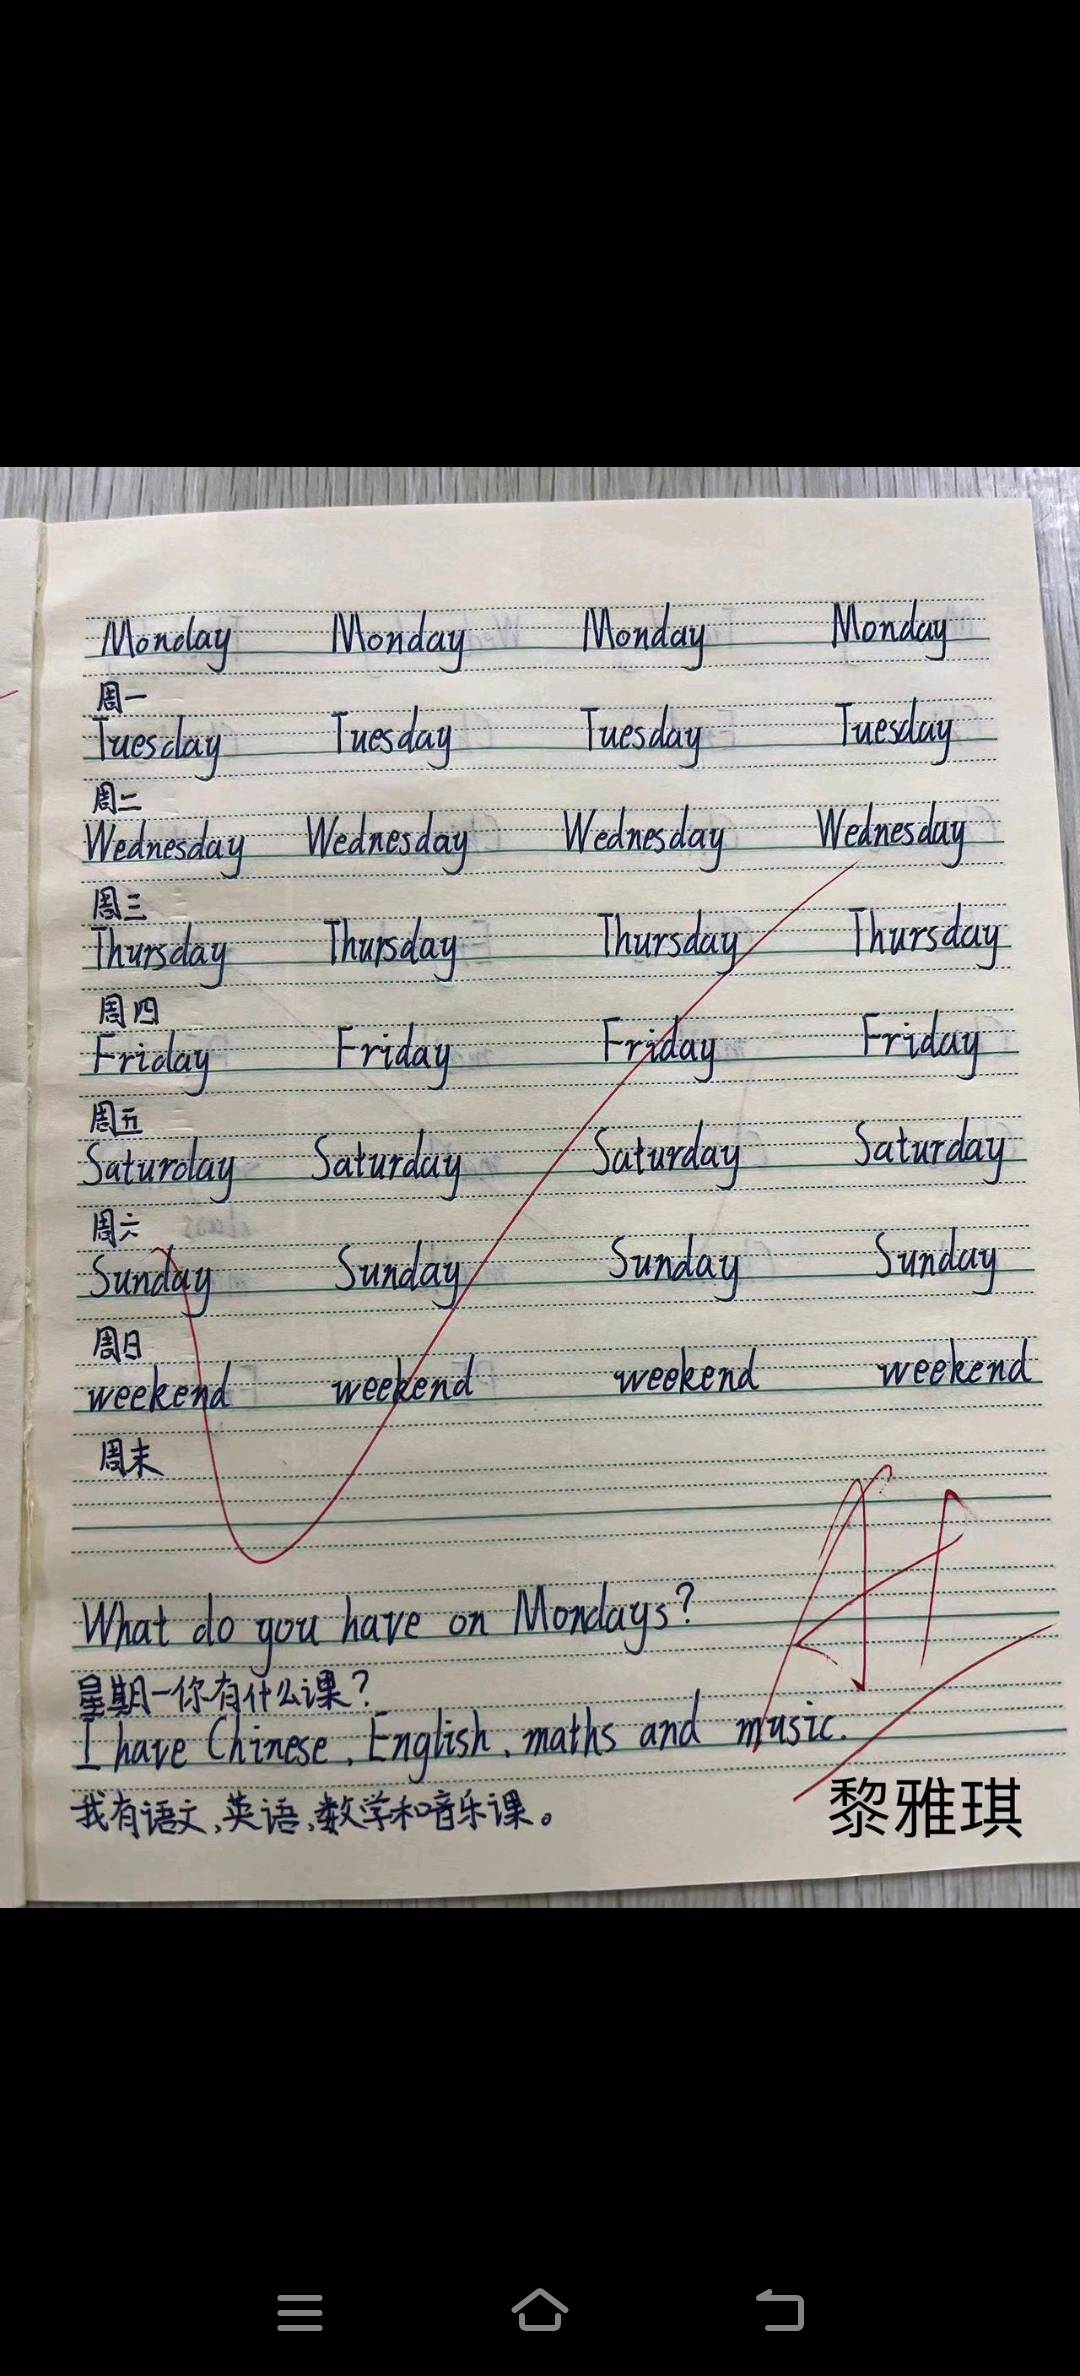 Monday Monday Monday Monday
周一
Tuesday Tuesday Tuesday Tuesday
周二
Wednesday Wednesday Wednesday Wednesday
周三
Thursday Thursday Thursday Thursday
周四
Friday Friday Friday Friday
周五
Saturday Saturday Saturday Saturday
周六
Sunday Sunday Sunday Sunday
周日
weekend weekend weekend weekend
周末
What do you have on Mondays?
星期一你有什么课?
I have Chinese, English, maths and music.
我有语文,英语,数学和音乐课。
黎雅琪